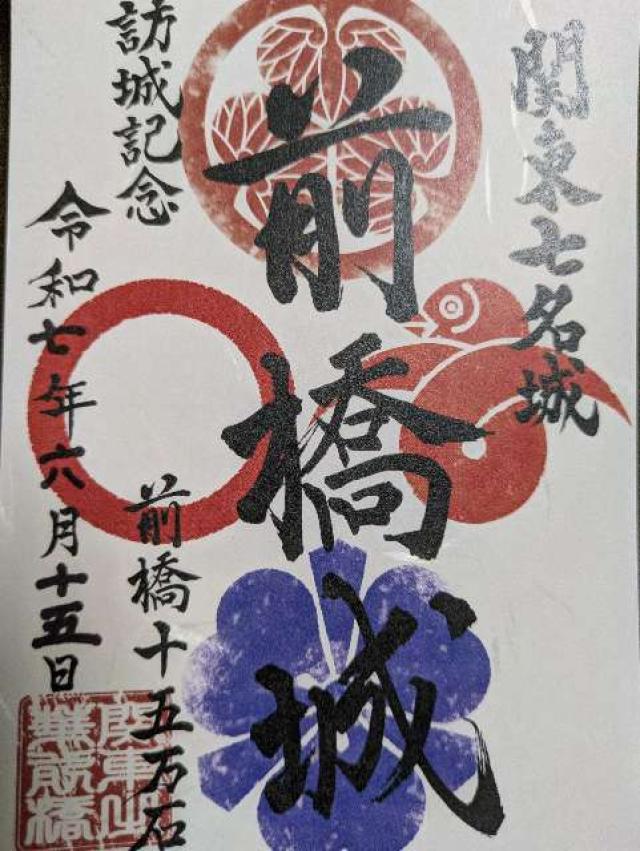 関東七名城
前橋城
訪城記念
前橋十五万石
令和七年六月十五日
関東之
華前橋